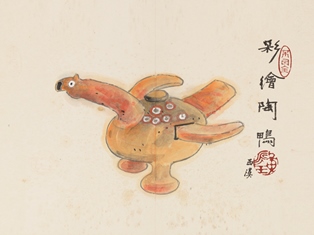 彩繪陶鴨
西漢